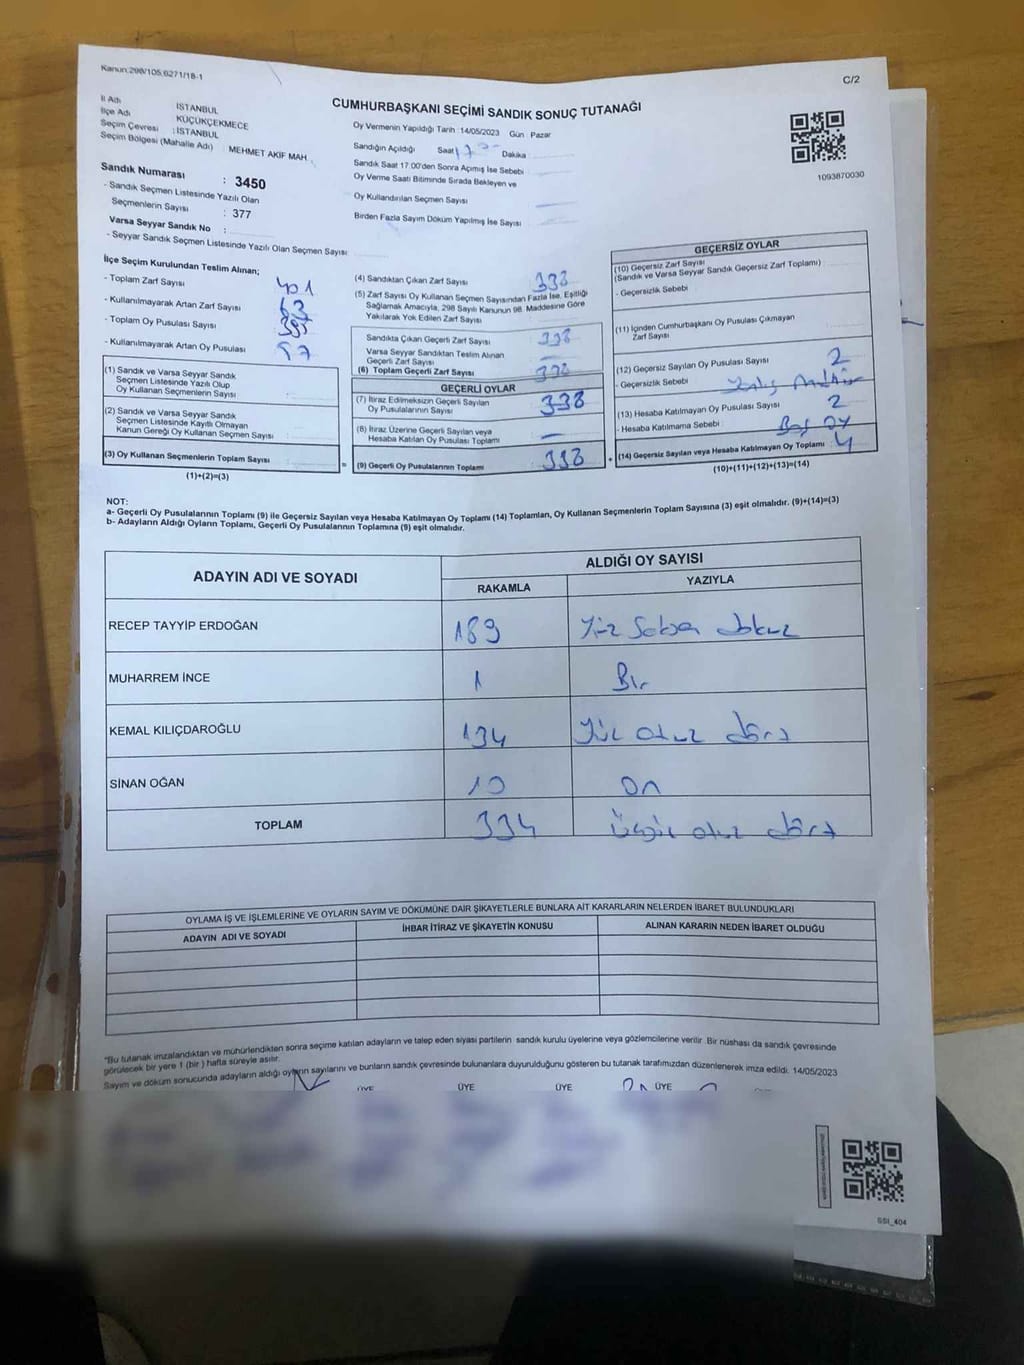 Kanun:298/105,6271/18-1
C/2
CUMHURBAŞKANI SEÇİMİ SANDIK SONUÇ TUTANAĞI
İl Adı İSTANBUL
İlçe Adı KÜÇÜKÇEKMECE
Seçim Çevresi : İSTANBUL
Seçim Bölgesi (Mahalle Adı) MEHMET AKİF MAH.
Sandık Numarası : 3450
- Sandık Seçmen Listesinde Yazılı Olan
Seçmenlerin Sayısı : 377
Varsa Seyyar Sandık No :
- Seyyar Sandık Seçmen Listesinde Yazılı Olan Seçmen Sayısı
Oy Vermenin Yapıldığı Tarih :14/05/2023 Gün : Pazar
Sandığın Açıldığı Saat 17 Dakika
Sandık Saat 17:00'den Sonra Açımış İse Sebebi
Oy Verme Saati Bitiminde Sırada Bekleyen ve
Oy Kullandırılan Seçmen Sayısı
Birden Fazla Sayım Döküm Yapılmış İse Sayısı
1093870030
İlçe Seçim Kurulundan Teslim Alınan;
- Toplam Zarf Sayısı 401
- Kullanılmayarak Artan Zarf Sayısı 63
- Toplam Oy Pusulası Sayısı
- Kullanılmayarak Artan Oy Pusulası 57
(1) Sandık ve Varsa Seyyar Sandık
Seçmen Listesinde Yazılı Olup
Oy Kullanan Seçmenlerin Sayısı :
(2) Sandık ve Varsa Seyyar Sandık
Seçmen Listesinde Kayıtlı Olmayan
Kanun Gereği Oy Kullanan Seçmen Sayısı :
(3) Oy Kullanan Seçmenlerin Toplam Sayısı
(1)+(2)=(3)
(4) Sandıktan Çıkan Zarf Sayısı 338
(5) Zarf Sayısı Oy Kullanan Seçmen Sayısından Fazla İse, Eşitliği
Sağlamak Amacıyla, 298 Sayılı Kanunun 98. Maddesine Göre
Yakılarak Yok Edilen Zarf Sayısı
Sandıkta Çıkan Geçerli Zarf Sayısı 338
Varsa Seyyar Sandıktan Teslim Alınan
Geçerli Zarf Sayısı
(6) Toplam Geçerli Zarf Sayısı 338
GEÇERLİ OYLAR
(7) İtiraz Edilmeksizin Geçerli Sayılan
Oy Pusulalarının Sayısı 338
(8) İtiraz Üzerine Geçerli Sayılan veya
Hesaba Katılan Oy Pusulası Toplamı
= (9) Geçerli Oy Pusulalarının Toplamı 338 +
GEÇERSİZ OYLAR
(10) Geçersiz Zarf Sayısı
(Sandık ve Varsa Seyyar Sandık Geçersiz Zarf Toplamı)
- Geçersizlik Sebebi
(11) İçinden Cumhurbaşkanı Oy Pusulası Çıkmayan
Zarf Sayısı
(12) Geçersiz Sayılan Oy Pusulası Sayısı 2
- Geçersizlik Sebebi
(13) Hesaba Katılmayan Oy Pusulası Sayısı 2
- Hesaba Katılmama Sebebi : Boş oy
(14) Geçersiz Sayılan veya Hesaba Katılmayan Oy Toplamı : 4
(10)+(11)+(12)+(13)=(14)
NOT:
a- Geçerli Oy Pusulalarının Toplamı (9) ile Geçersiz Sayılan veya Hesaba Katılmayan Oy Toplamı (14) Toplamları, Oy Kullanan Seçmenlerin Toplam Sayısına (3) eşit olmalıdır. (9)+(14)=(3)
b- Adayların Aldığı Oyların Toplamı, Geçerli Oy Pusulalarının Toplamına (9) eşit olmalıdır.
ADAYIN ADI VE SOYADI ALDIĞI OY SAYISI
RAKAMLA YAZIYLA
RECEP TAYYİP ERDOĞAN 189 Yüz Seksen dokuz
MUHARREM İNCE 1 Bir
KEMAL KILIÇDAROĞLU 134 Yüz otuz dört
SİNAN OĞAN 10 on
TOPLAM 334 üçyüz otuz dört
OYLAMA İŞ VE İŞLEMLERİNE VE OYLARIN SAYIM VE DÖKÜMÜNE DAİR ŞİKAYETLERLE BUNLARA AİT KARARLARIN NELERDEN İBARET BULUNDUKLARI
ADAYIN ADI VE SOYADI İHBAR İTİRAZ VE ŞİKAYETİN KONUSU ALINAN KARARIN NEDEN İBARET OLDUĞU
"Bu tutanak imzalandıktan ve mühürlendikten sonra seçime katılan adayların ve talep eden siyasi partilerin sandık kurulu üyelerine veya gözlemcilerine verilir. Bir nüshası da sandık çevresinde
görülecek bir yere 1 (bir) hafta süreyle asılır.
Sayım ve döküm sonucunda adayların aldığı oyların sayılarını ve bunların sandık çevresinde bulunanlara duyurulduğunu gösteren bu tutanak tarafımızdan düzenlenerek imza edildi. 14/05/2023
ÜYE ÜYE ÜYE ÜYE
SSI_404